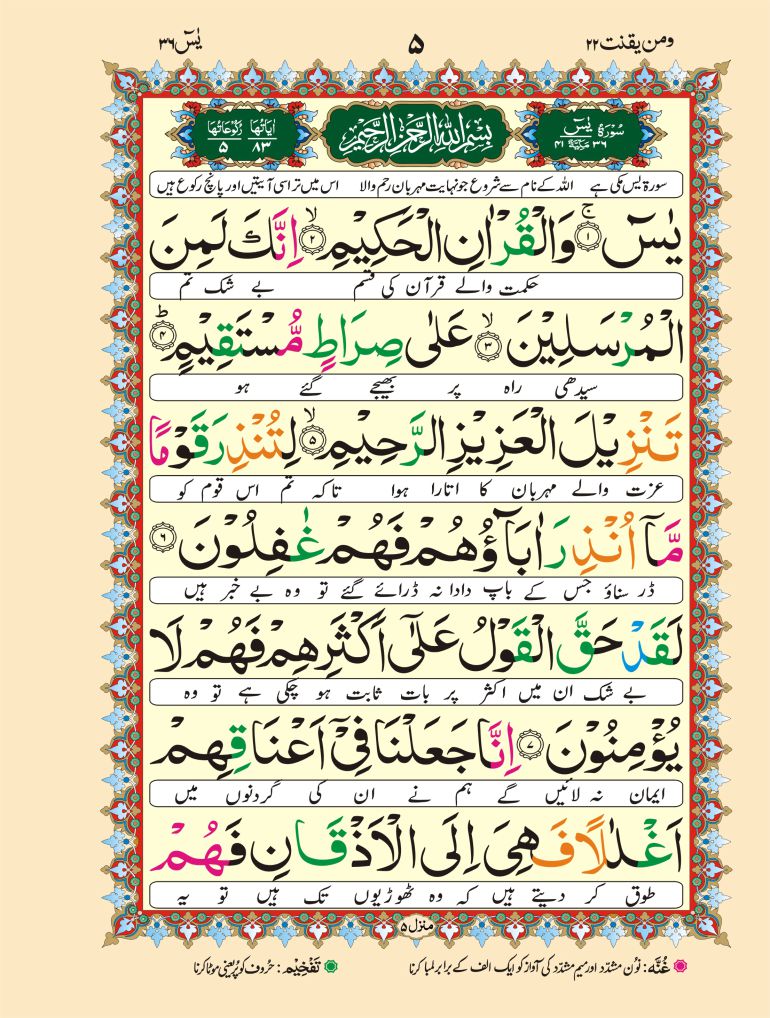 ومن یقنت ۲۲ ۵ یٰسٓ ۳۶
سُوْرَةُ یٰسٓ ۳۶ مَکِّیَّةٌ ۴۱ بِسْمِ اللّٰهِ الرَّحْمٰنِ الرَّحِیْمِ اٰیَاتُهَا ۸۳ رُکُوْعَاتُهَا ۵
سورۃ یٰس مکی ہے اللہ کے نام سے شروع جو نہایت مہربان رحم والا اس میں تراسی آیتیں اور پانچ رکوع ہیں
یٰسٓ ۚ ﴿۱﴾ وَالْقُرْاٰنِ الْحَكِیْمِ ۙ ﴿۲﴾ اِنَّكَ لَمِنَ
حکمت والے قرآن کی قسم بے شک تم
الْمُرْسَلِیْنَ ۙ ﴿۳﴾ عَلٰی صِرَاطٍ مُّسْتَقِیْمٍ ؕ ﴿۴﴾
سیدھی راہ پر بھیجے گئے ہو
تَنْزِیْلَ الْعَزِیْزِ الرَّحِیْمِ ۙ ﴿۵﴾ لِتُنْذِرَ قَوْمًا
عزت والے مہربان کا اتارا ہوا تاکہ تم اس قوم کو
مَّاۤ اُنْذِرَ اٰبَآؤُهُمْ فَهُمْ غٰفِلُوْنَ ﴿۶﴾
ڈر سناؤ جس کے باپ دادا نہ ڈرائے گئے تو وہ بے خبر ہیں
لَقَدْ حَقَّ الْقَوْلُ عَلٰۤی اَكْثَرِهِمْ فَهُمْ لَا
بے شک ان میں اکثر پر بات ثابت ہو چکی ہے تو وہ
یُؤْمِنُوْنَ ﴿۷﴾ اِنَّا جَعَلْنَا فِیْۤ اَعْنَاقِهِمْ
ایمان نہ لائیں گے ہم نے ان کی گردنوں میں
اَغْلٰلًا فَهِیَ اِلَی الْاَذْقَانِ فَهُمْ
طوق کر دیتے ہیں کہ وہ ٹھوڑیوں تک ہیں تو یہ
منزل ۵
غُنَّه: نون مشدّد اور میم مشدّد کی آواز کو ایک الف کے برابر لمبا کرنا تَفْخِیْم: حُروف کو پُر یعنی موٹا کرنا